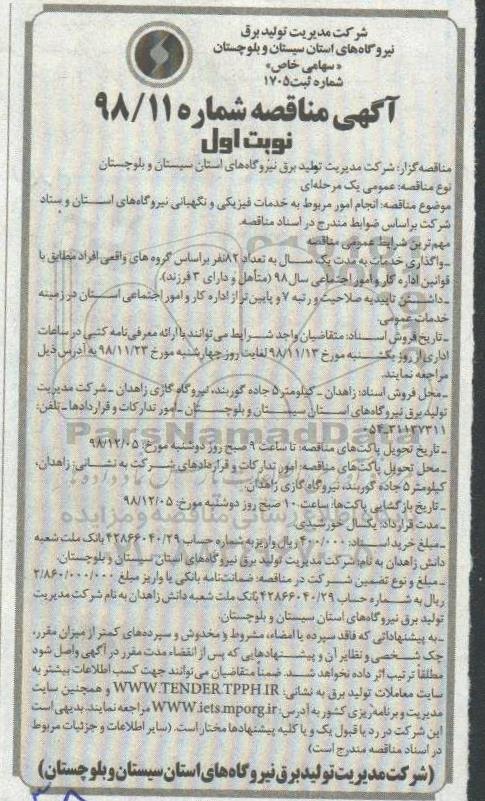 شرکت مدیریت تولید برق
نیروگاه‌های استان سیستان و بلوچستان
«سهامی خاص»
شماره ثبت ۱۷۰۵
آگهی مناقصه شماره ۹۸/۱۱
نوبت اول
مناقصه‌گزار: شرکت مدیریت تولید برق نیروگاه‌های استان سیستان و بلوچستان
نوع مناقصه: عمومی یک مرحله‌ای
موضوع مناقصه: انجام امور مربوط به خدمات فیزیکی و نگهبانی نیروگاه‌های استان و ستاد
شرکت براساس ضوابط مندرج در اسناد مناقصه.
مهم‌ترین شرایط عمومی مناقصه
ـ واگذاری خدمات به مدت یک سال به تعداد ۸۲نفر براساس گروه های واقعی افراد مطابق با
قوانین اداره کار و امور اجتماعی سال ۹۸ (متأهل و دارای ۳ فرزند).
ـ داشتن تاییدیه صلاحیت و رتبه ۷ و پایین‌تر از اداره کار و امور اجتماعی استان در زمینه
خدمات عمومی.
ـ تاریخ فروش اسناد: متقاضیان واجد شرایط می‌توانند با ارائه معرفی‌نامه کتبی در ساعات
اداری از روز یکشنبه مورخ ۹۸/۱۱/۱۳ لغایت روز چهارشنبه مورخ ۹۸/۱۱/۲۳ به آدرس ذیل
مراجعه نمایند.
ـ محل فروش اسناد: زاهدان ـ کیلومتر ۵ جاده گوربند، نیروگاه گازی زاهدان ـ شرکت مدیریت
تولید برق نیروگاه‌های استان سیستان و بلوچستان ـ امور تدارکات و قراردادها ـ تلفن:
۰۵۴ـ۳۱۱۳۷۳۱۱
ـ تاریخ تحویل پاکت‌های مناقصه: تا ساعت ۹ صبح روز دوشنبه مورخ: ۹۸/۱۲/۰۵
ـ محل تحویل پاکت‌های مناقصه: امور تدارکات و قراردادهای شرکت به نشانی: زاهدان،
کیلومتر ۵ جاده گوربند، نیروگاه گازی زاهدان.
ـ تاریخ بازگشایی پاکت‌ها: ساعت ۱۰ صبح روز دوشنبه مورخ: ۹۸/۱۲/۰۵
ـ مدت قرارداد: یکسال خورشیدی.
ـ مبلغ خرید اسناد: ۴۰۰/۰۰۰ ریال واریز به شماره حساب ۴۲۸۶۶۰۴۰/۲۹ بانک ملت شعبه
دانش زاهدان به نام: شرکت مدیریت تولید برق نیروگاه‌های استان سیستان و بلوچستان.
ـ مبلغ و نوع تضمین شرکت در مناقصه: ضمانتنامه بانکی یا واریز مبلغ ۲/۸۶۰/۰۰۰/۰۰۰
ریال به شماره حساب ۴۲۸۶۶۰۴۰/۲۹ بانک ملت شعبه دانش زاهدان به نام شرکت مدیریت
تولید برق نیروگاه‌های استان سیستان و بلوچستان.
ـ به پیشنهاداتی که فاقد سپرده یا امضاء، مشروط و مخدوش و سپرده‌های کمتر از میزان مقرر،
چک شخصی و نظایر آن و پیشنهادهایی که پس از انقضاء مدت مقرر در آگهی واصل شود
مطلقاً ترتیب اثر داده نخواهد شد. ضمناً متقاضیان می‌توانند جهت کسب اطلاعات بیشتر به
سایت معاملات تولید برق به نشانی: WWW.TENDER.TPPH.IR و همچنین سایت
مدیریت و برنامه‌ریزی کشور به آدرس: WWW.iets.mporg.ir مراجعه نمایند. بدیهی است
این شرکت در رد یا قبول یک و یا کلیه پیشنهادها مختار است. (سایر اطلاعات و جزئیات مربوط
در اسناد مناقصه مندرج است)
(شرکت مدیریت تولید برق نیروگاه‌های استان سیستان و بلوچستان)
ParsNamadData